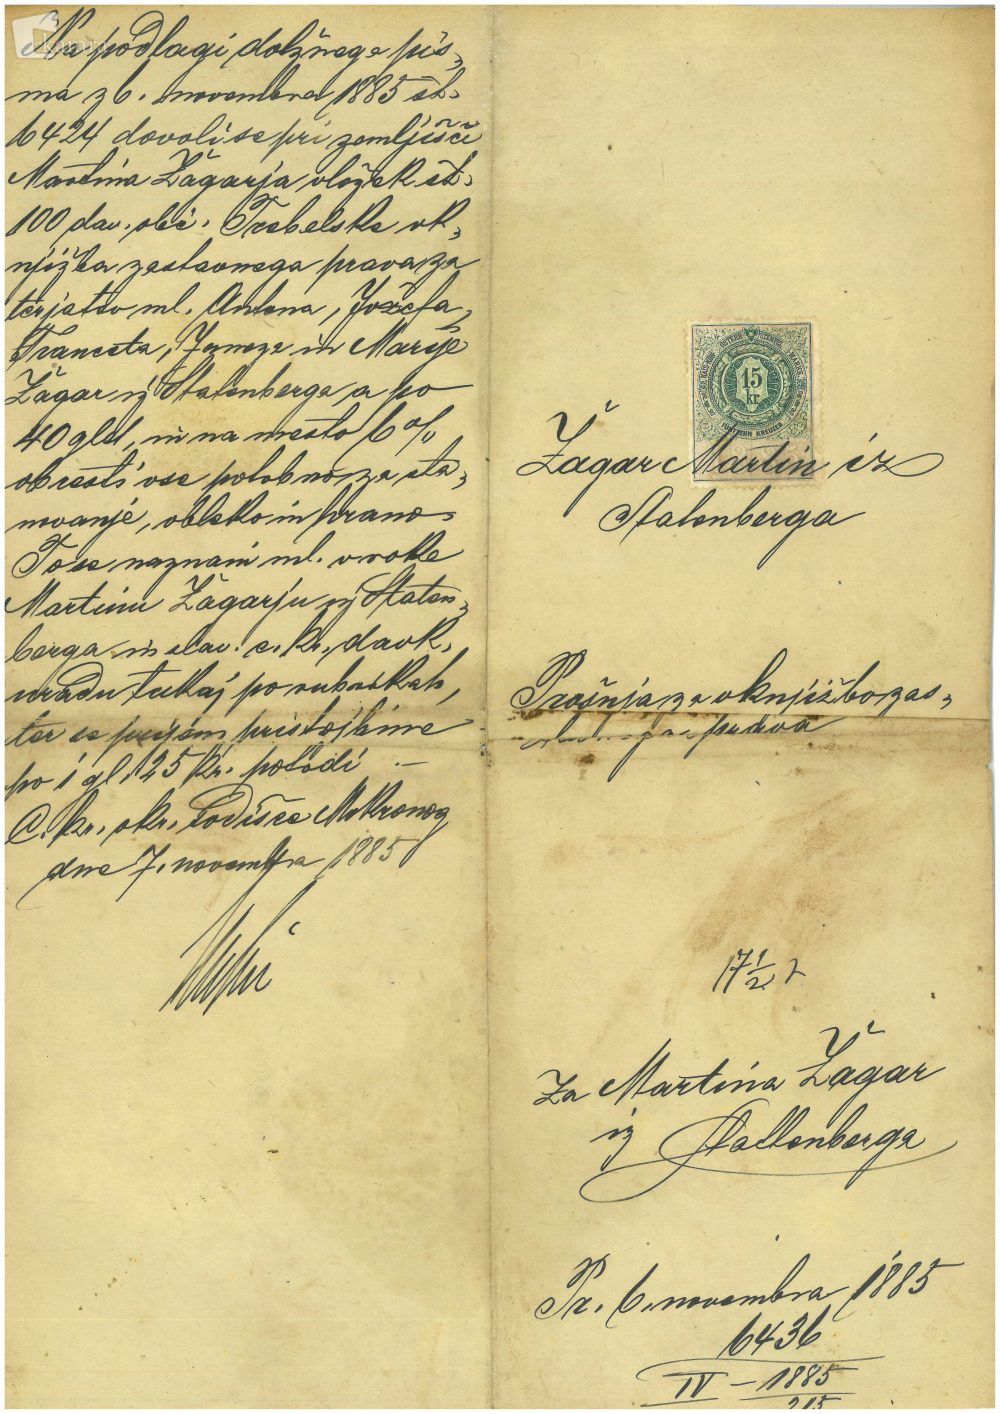 Na podlagi dolžnega pis-
ma z 6. novembra 1885 št.
6424 dovoli se pri zemljišči
Martina Žagarja vložek št.
100 dav. obč. Trebelske vk-
njižba zastavnega prava za
terjatev ml. Antona, Jožefa,
Franceta, Janeza in Marije
Žagar iz Statenberga a po
40 gld, in na mesto 6%
obresti vse potrebno za sta-
novanje, obleko in hrano.
To se naznani ml. v roke
Martinu Žagarju iz Staten-
berga in slav. c. kr. davk.
uradu tukaj po rubrikah,
ter se pristojbine
po 1 gl 25 kr. potrdi —
C. kr. okr. sodišče Mokronog
dne 7. novembra 1885
15
kr.
FÜNFZEHN KREUZER
Žagar Martin iz
Statenberga
Prošnja za vknjižbo zas-
prava
17 1/2
Za Martina Žagar
iz Stattenberga
Pr. 6. novembra 1885
6436
IV – 1885
215